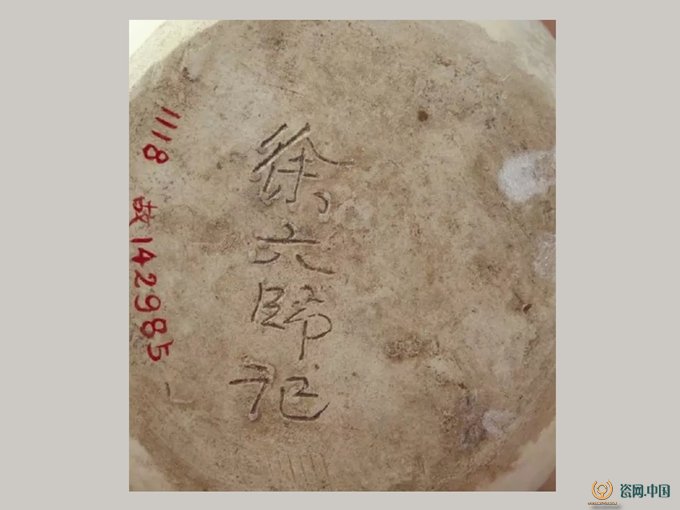 1118
故142985
徐六師記
瓷网.中国